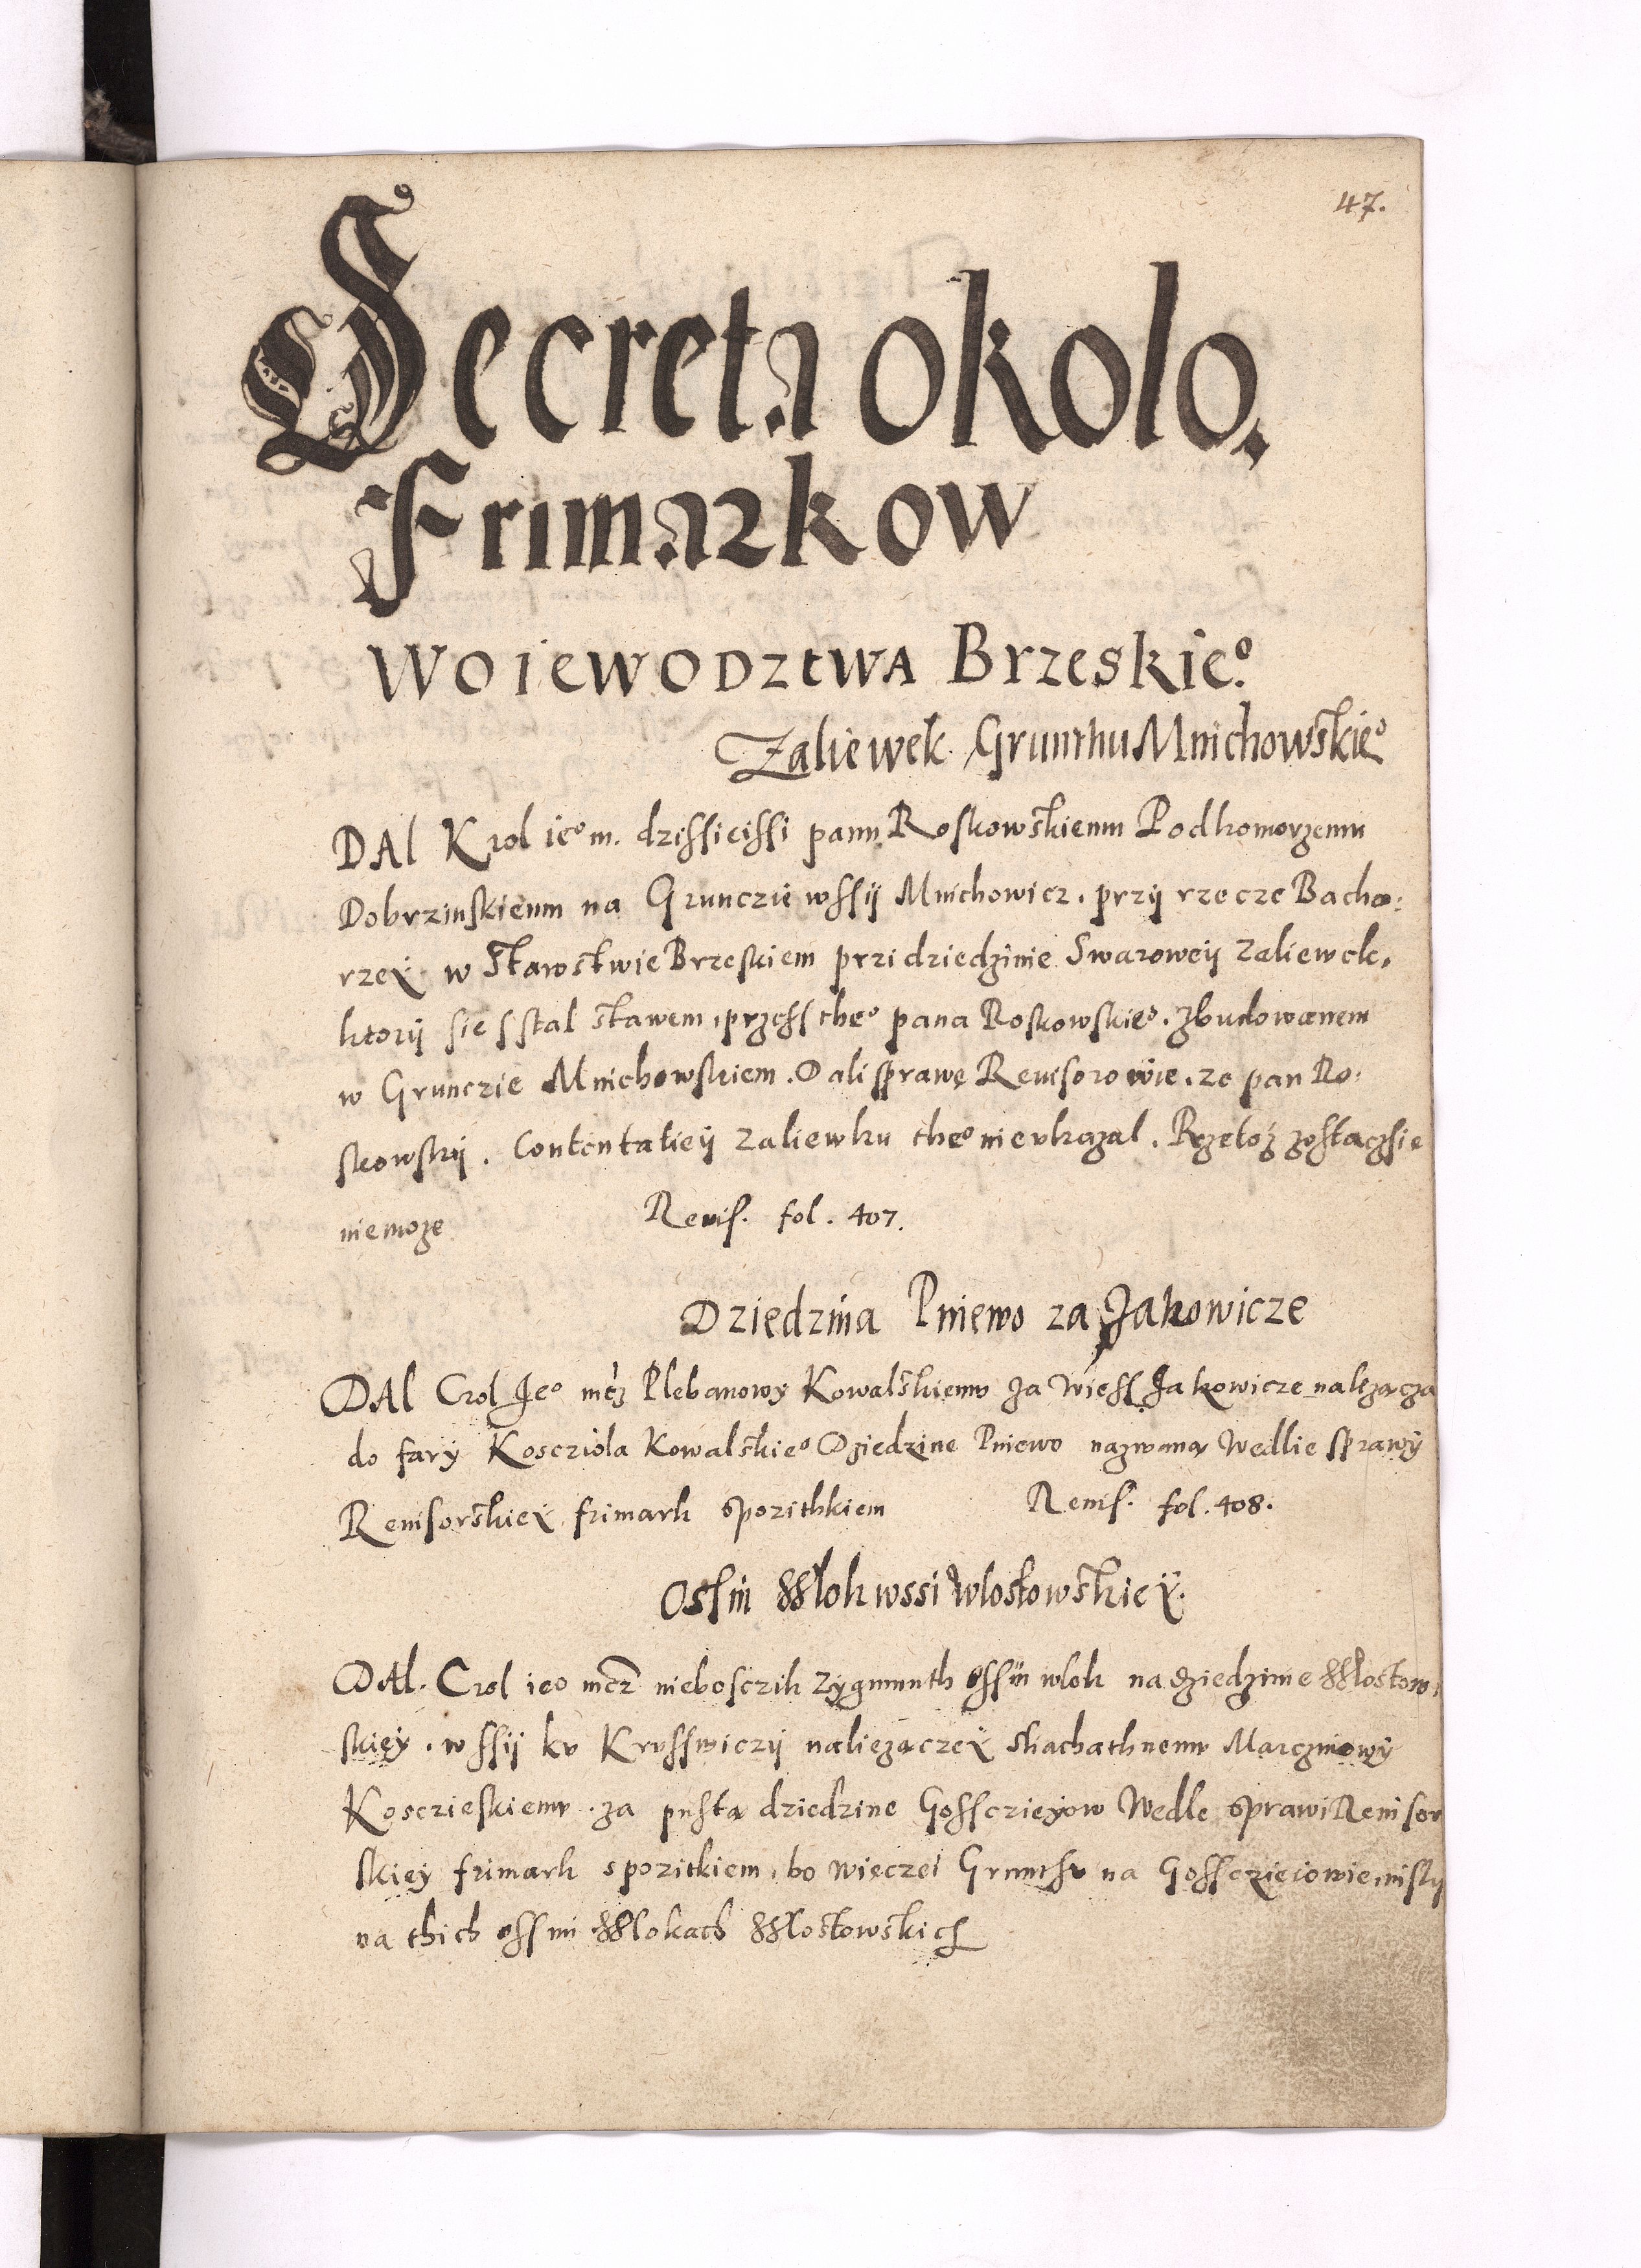 47.
Decreta okolo
Frimarkow
Woiewodztwa Brzeskie⁰.
Zaliewek Grunthu Mnichowskie⁰
DAl Krol ie⁰ m. dzissieissi panu Roskowskiemu Podkomorzemu
Dobrzinskiemu na Grunczie wssÿ Mnichowicz. przÿ rzecze Bacho:
rzeÿ w Starostwie Brzeskiem przi dziedzinie Swaroweÿ zaliewek.
ktorÿ sie sstal stawem, przess the⁰ pana Roskowskie⁰. zbudowanem
w Grunczie Mnichowskiem. Dali sprawę Revisorowie. ze pan Ro:
skowskÿ. Contentatieÿ zaliewku the⁰ nie vkazal. Przetoż zostacz sie
nie moze Revis. fol. 407.
Dziedzina Pniewo za Jakowicze
DAl Crol Je⁰ mcz Plebanowy Kowalskiemv za Wiess Jakowicze nalezacza
do farÿ Kosciola Kowalskie⁰ Dziedzine Pniewo nazwana Wedlie sprawÿ
Revisorskieÿ frimark spozithkiem Revis. fol. 408.
Ossm Wlok wssi Wlostowskieÿ.
DAl. Crol ie⁰ mcz nieboszczik Zygmunth ossm wlok na dziedzinie Wlostow:
skieÿ. wssÿ kv Krusswiczÿ naliezaczeÿ sliachathnemv Marczinowÿ
Koscieskiemv. za pusta dziedzine Gossczieÿow Wedle sprawi Revisor
skieÿ frimark spozitkiem, bo wieczei Grunthv na Gossczieiowie, nisly
na thich ossmi Wlokach Wlostowskich